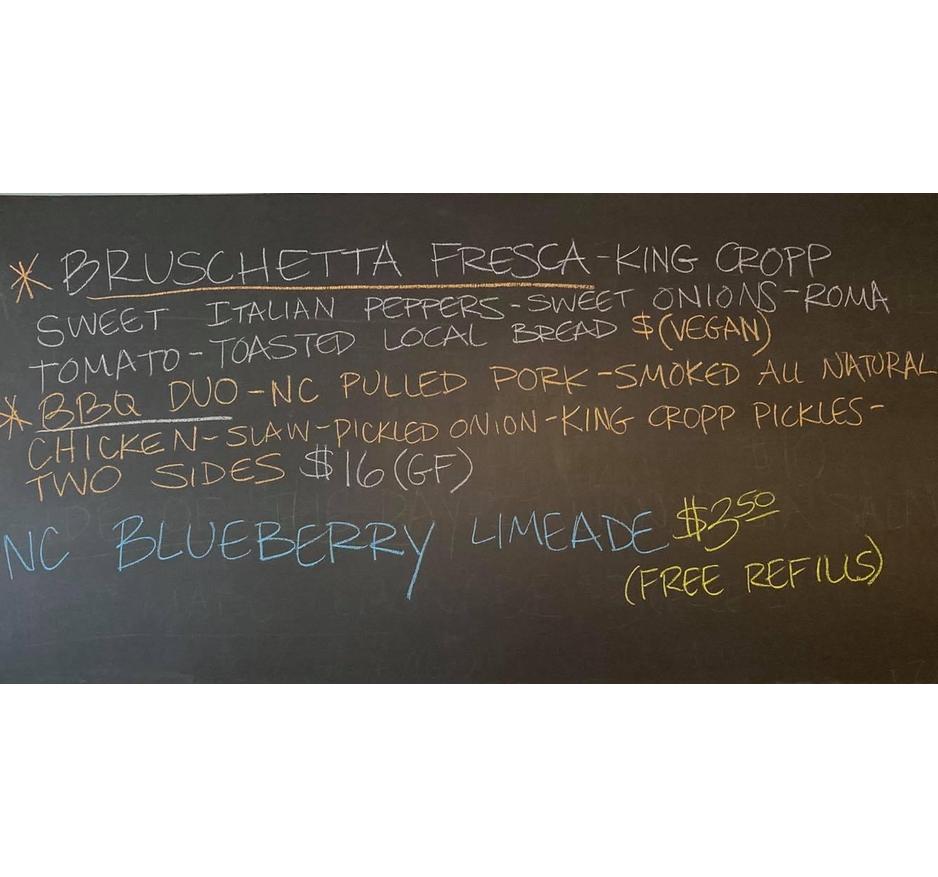 * BRUSCHETTA FRESCA-KING CROPP
SWEET ITALIAN PEPPERS-SWEET ONIONS-ROMA
TOMATO-TOASTED LOCAL BREAD $(VEGAN)
* BBQ DUO-NC PULLED PORK-SMOKED ALL NATURAL
CHICKEN-SLAW-PICKLED ONION-KING CROPP PICKLES-
TWO SIDES $16(GF)
NC BLUEBERRY LIMEADE $3.50
(FREE REFILLS)